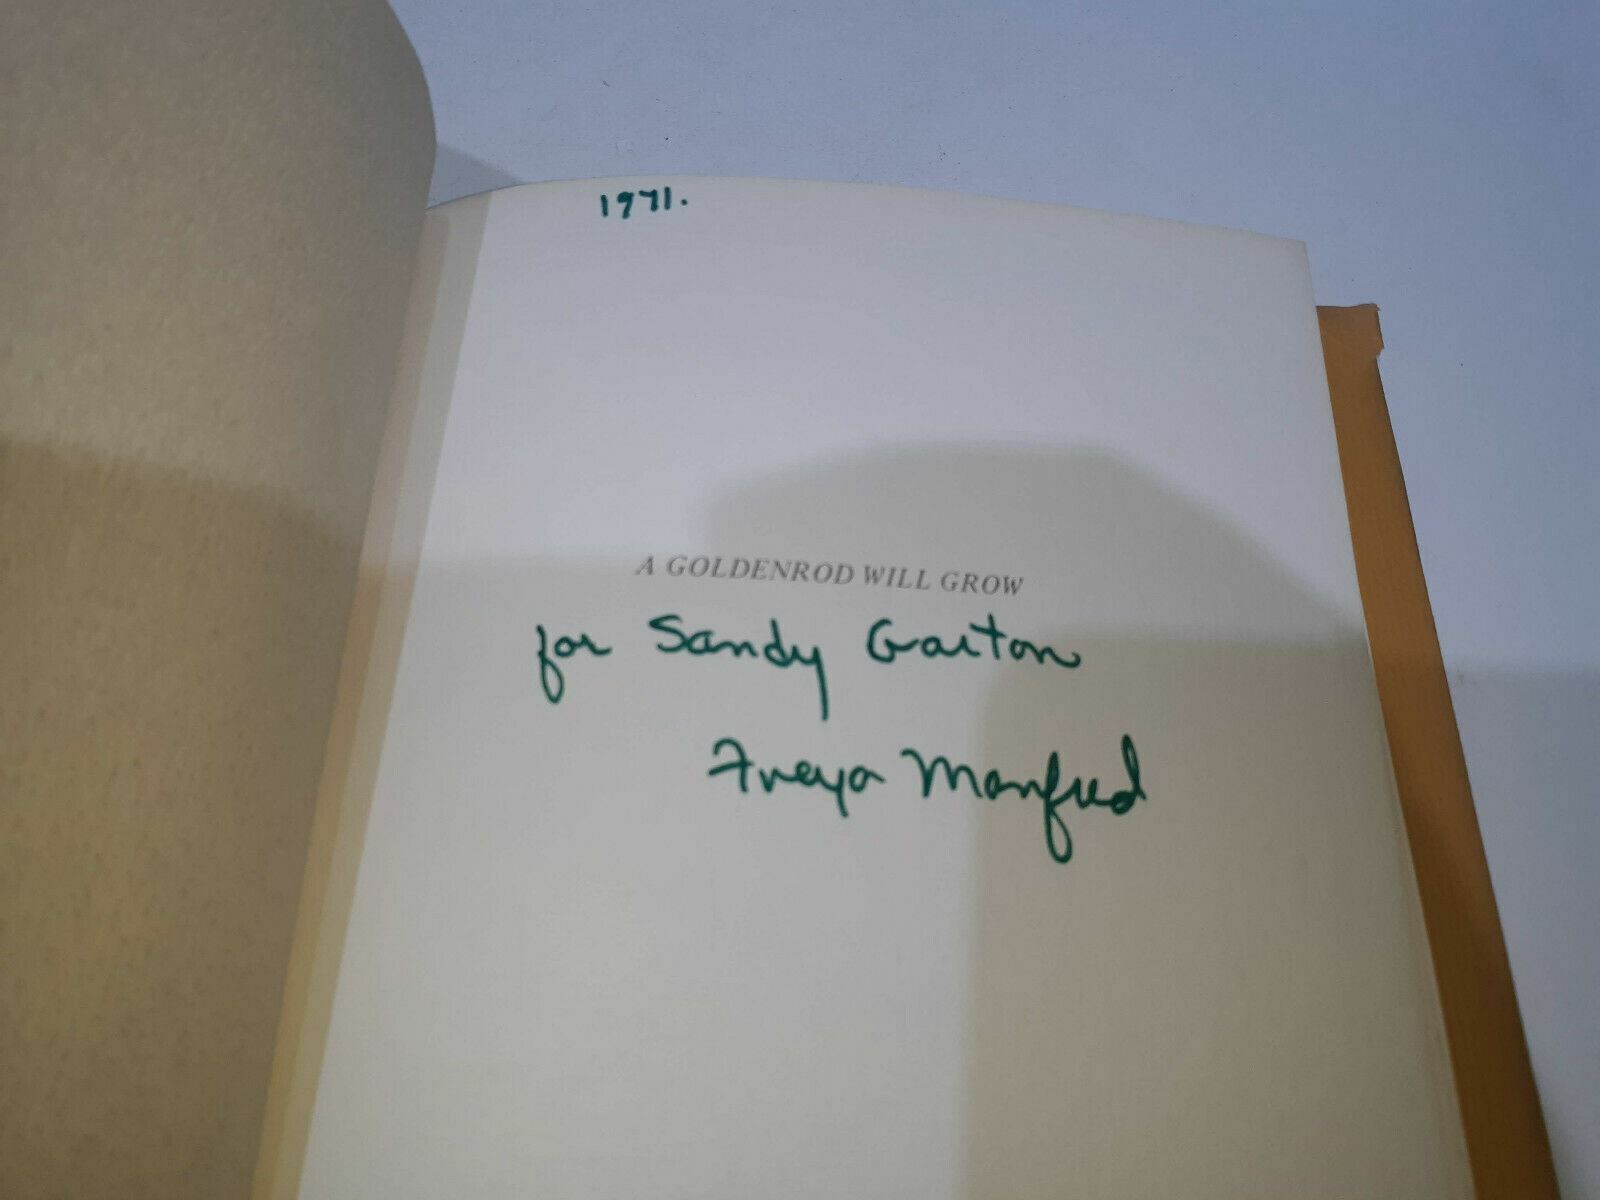 1971.
A GOLDENROD WILL GROW
for Sandy Gaiton
Freya Manfred